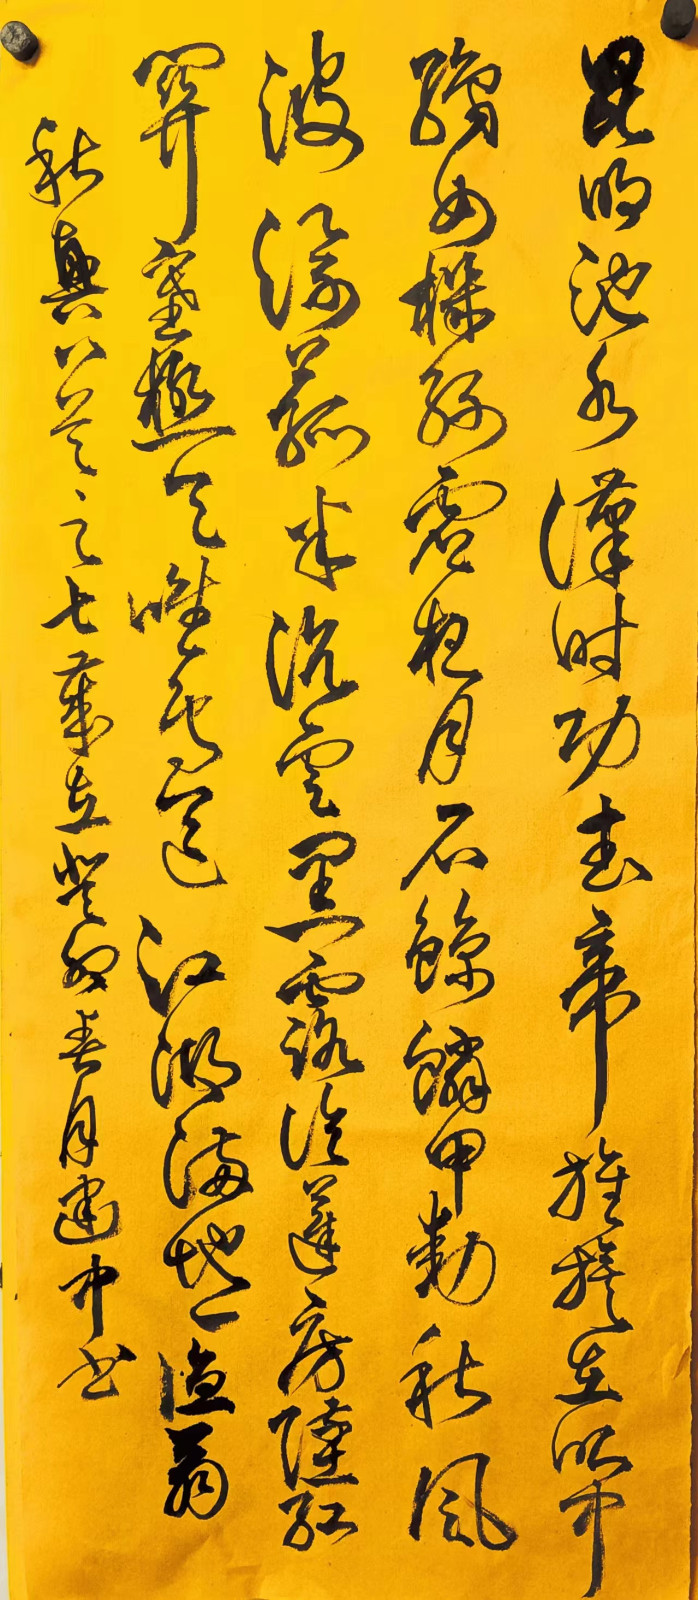 昆明池水漢时功武帝旌旗在眼中
織女機絲虛夜月石鯨鱗甲動秋風
波漂菰米沉雲黑露冷蓮房墜紅
關塞極天唯鳥道江湖滿地一漁翁
秋興八首之七歲在癸卯春月建中书